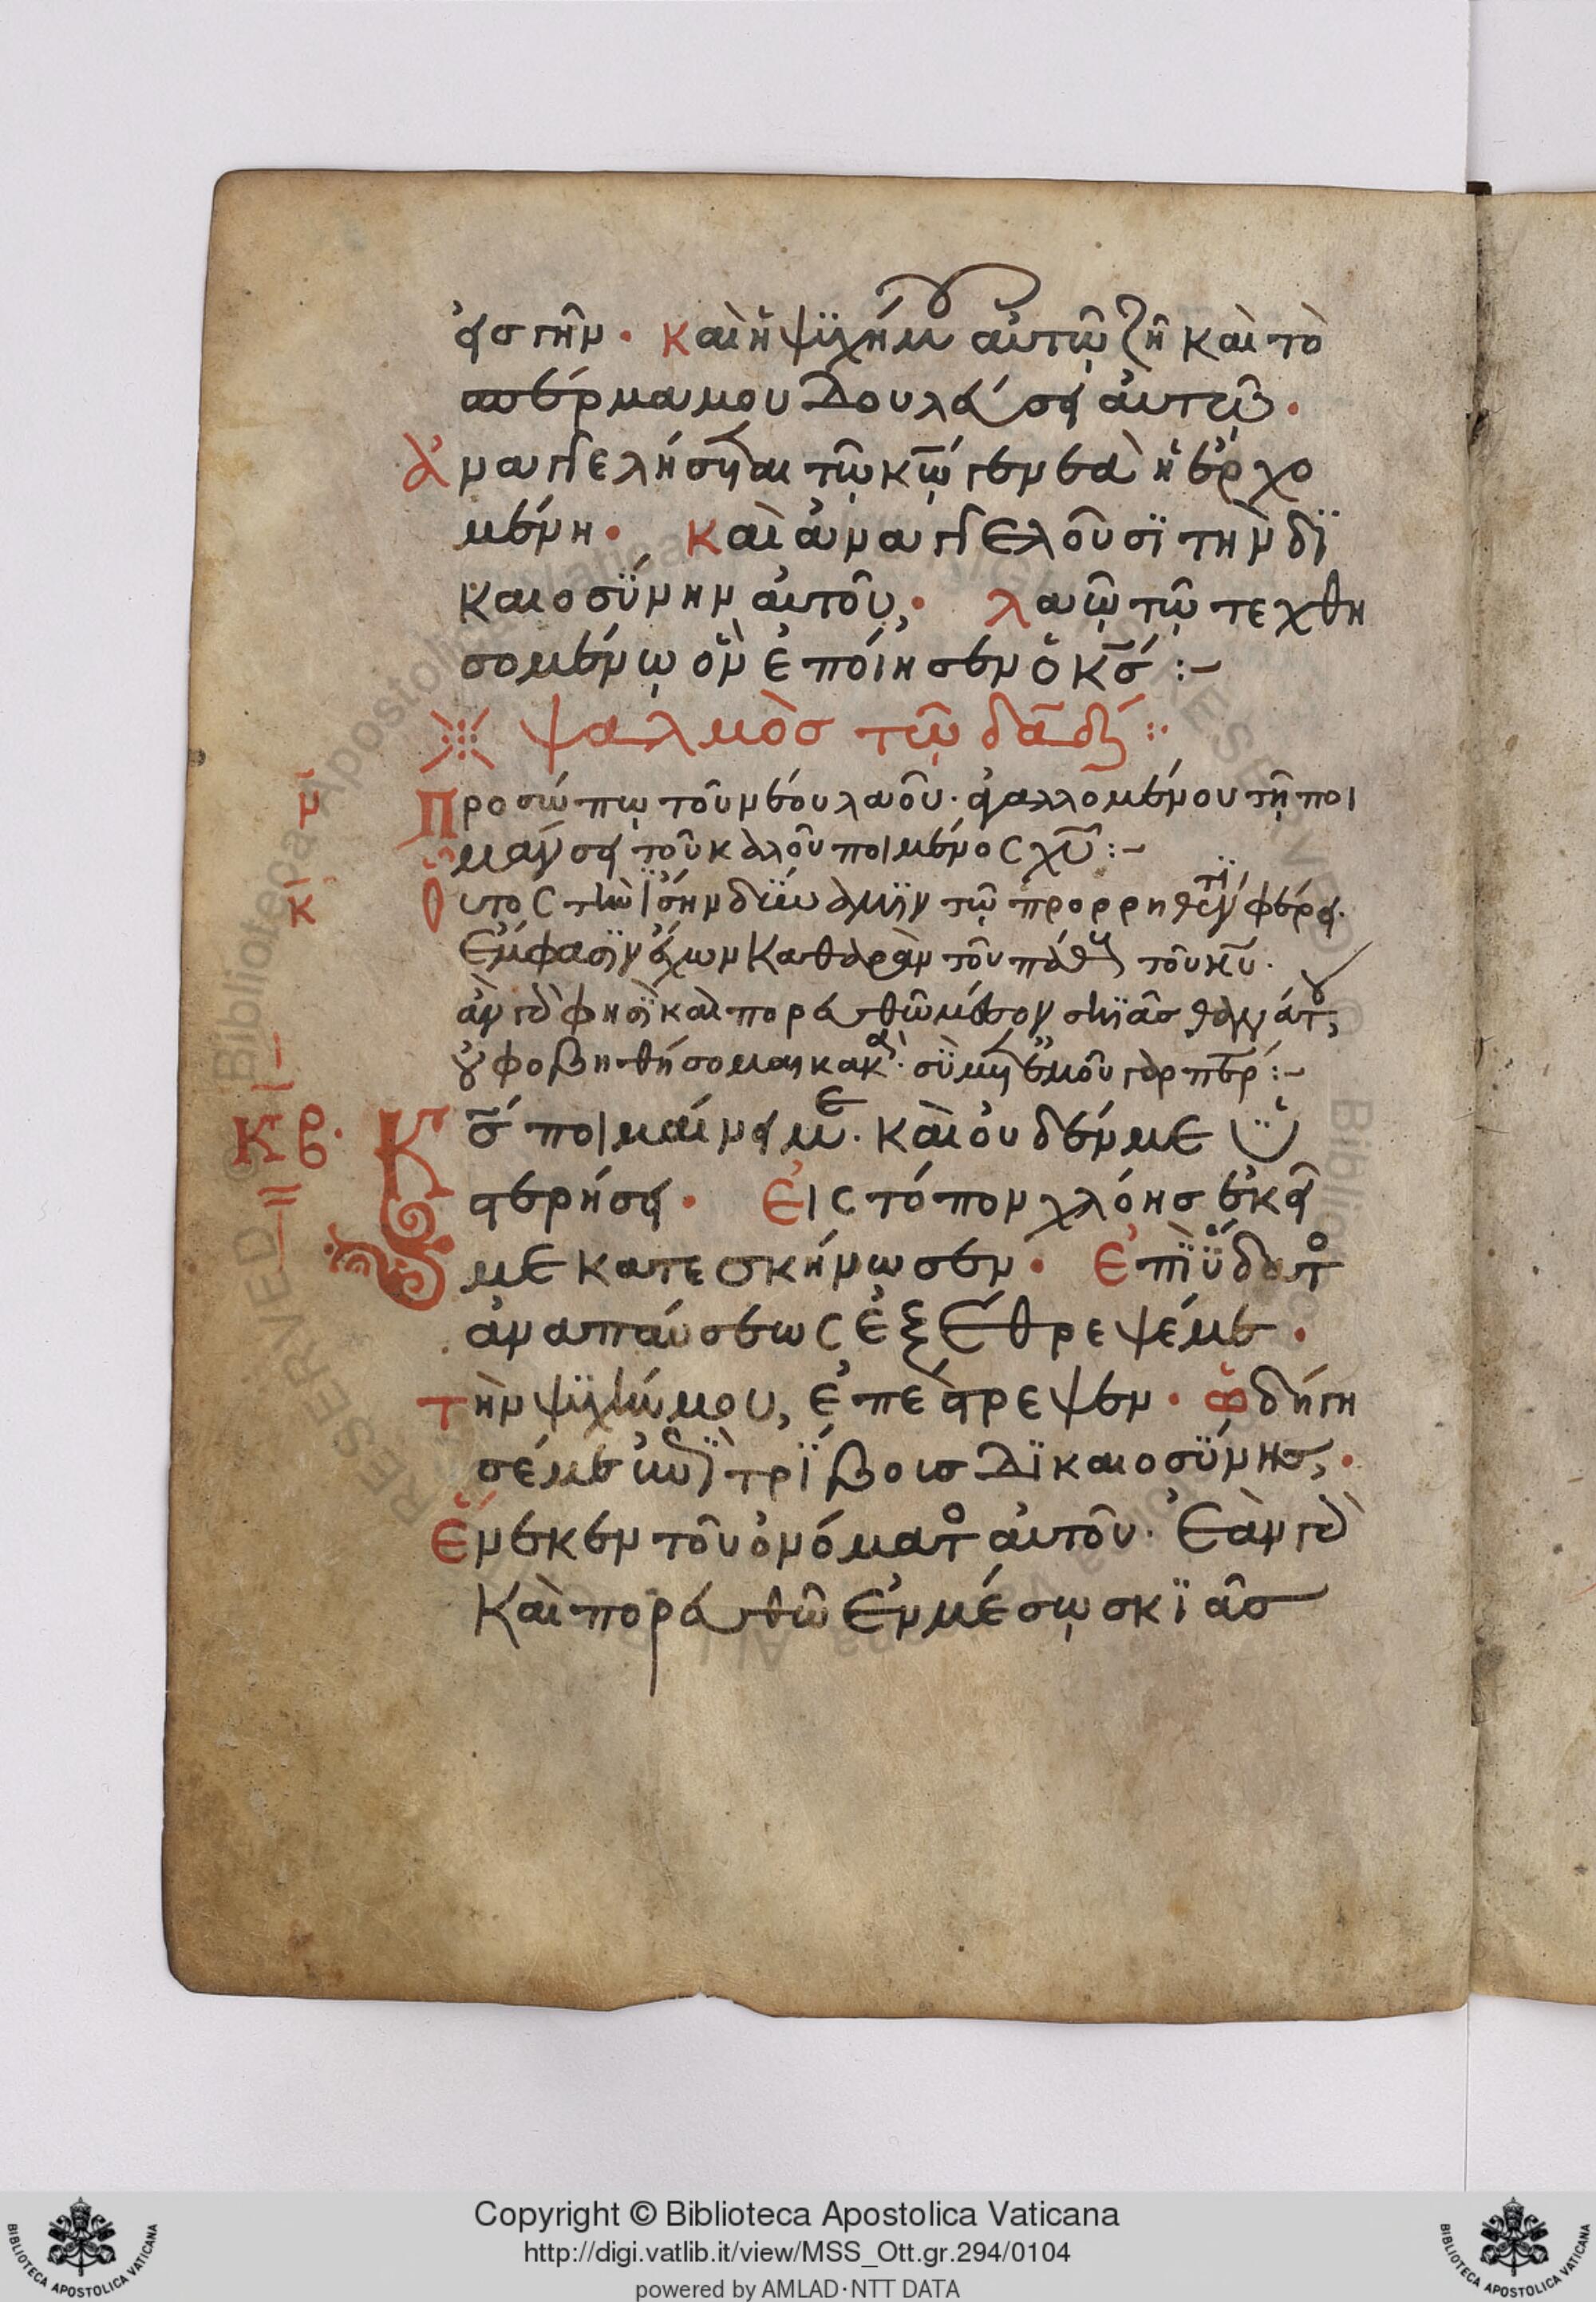 εἰς γῆν· καὶ ἡ ψυχή μου αὐτῷ ζῇ καὶ τὸ
σπέρμα μου δουλεύσει αὐτῷ·
ἀναγγελήσεται τῷ κῷ γενεὰ ἡ ἐρχο
μένη· καὶ ἀναγγελοῦσι τὴν δι
καιοσύνην αὐτοῦ· λαῷ τῷ τεχθη
σομένῳ ὃν ἐποίησεν ὁ κς:-
ψαλμὸς τῷ δαδ:
Προσώπῳ τοῦ νέου λαοῦ· ἀγαλλομένου τῇ ποι
μάνσει τοῦ καλοῦ ποιμένος χυ:-
Οὗτος τὴν δύναμιν τῷ προρρηθέντι φέρει.
Ἔμφασιν ἔχων καθαρὰν τοῦ πάθους τοῦ κυ·
ἐὰν γὰρ φησι καὶ πορευθῶ μέσον σκιᾶς θανάτου,
οὐ φοβηθήσομαι κακά· σὺ μετ' ἐμοῦ γὰρ περ:-
ΚΒ
Κς ποιμαίνει με· καὶ οὐδέν με ὑ
στερήσει· Εἰς τόπον χλόης ἐκεῖ
με κατεσκήνωσεν· Ἐπὶ ὕδατος
ἀναπαύσεως ἐξέθρεψέ με·
τὴν ψυχήν μου, ἐπέστρεψεν· ὡδήγη
σέ με ἐπὶ τρίβοις δικαιοσύνης,·
Ἕνεκεν τοῦ ὀνόματος αὐτοῦ· Ἐὰν γὰρ
καὶ πορευθῶ ἐν μέσῳ σκιᾶς
Copyright © Biblioteca Apostolica Vaticana
http://digi.vatlib.it/view/MSS_Ott.gr.294/0104
powered by AMLAD·NTT DATA